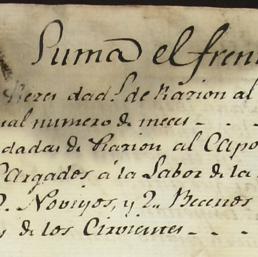 Suma el fren
Rezes dad.s de Razion al
ual numero de meces - - -
dadas de Razion al Capo
Cargados á la Labor de la
Noviyos, y 2.. Becenos
s de los Cirvientes - - - -